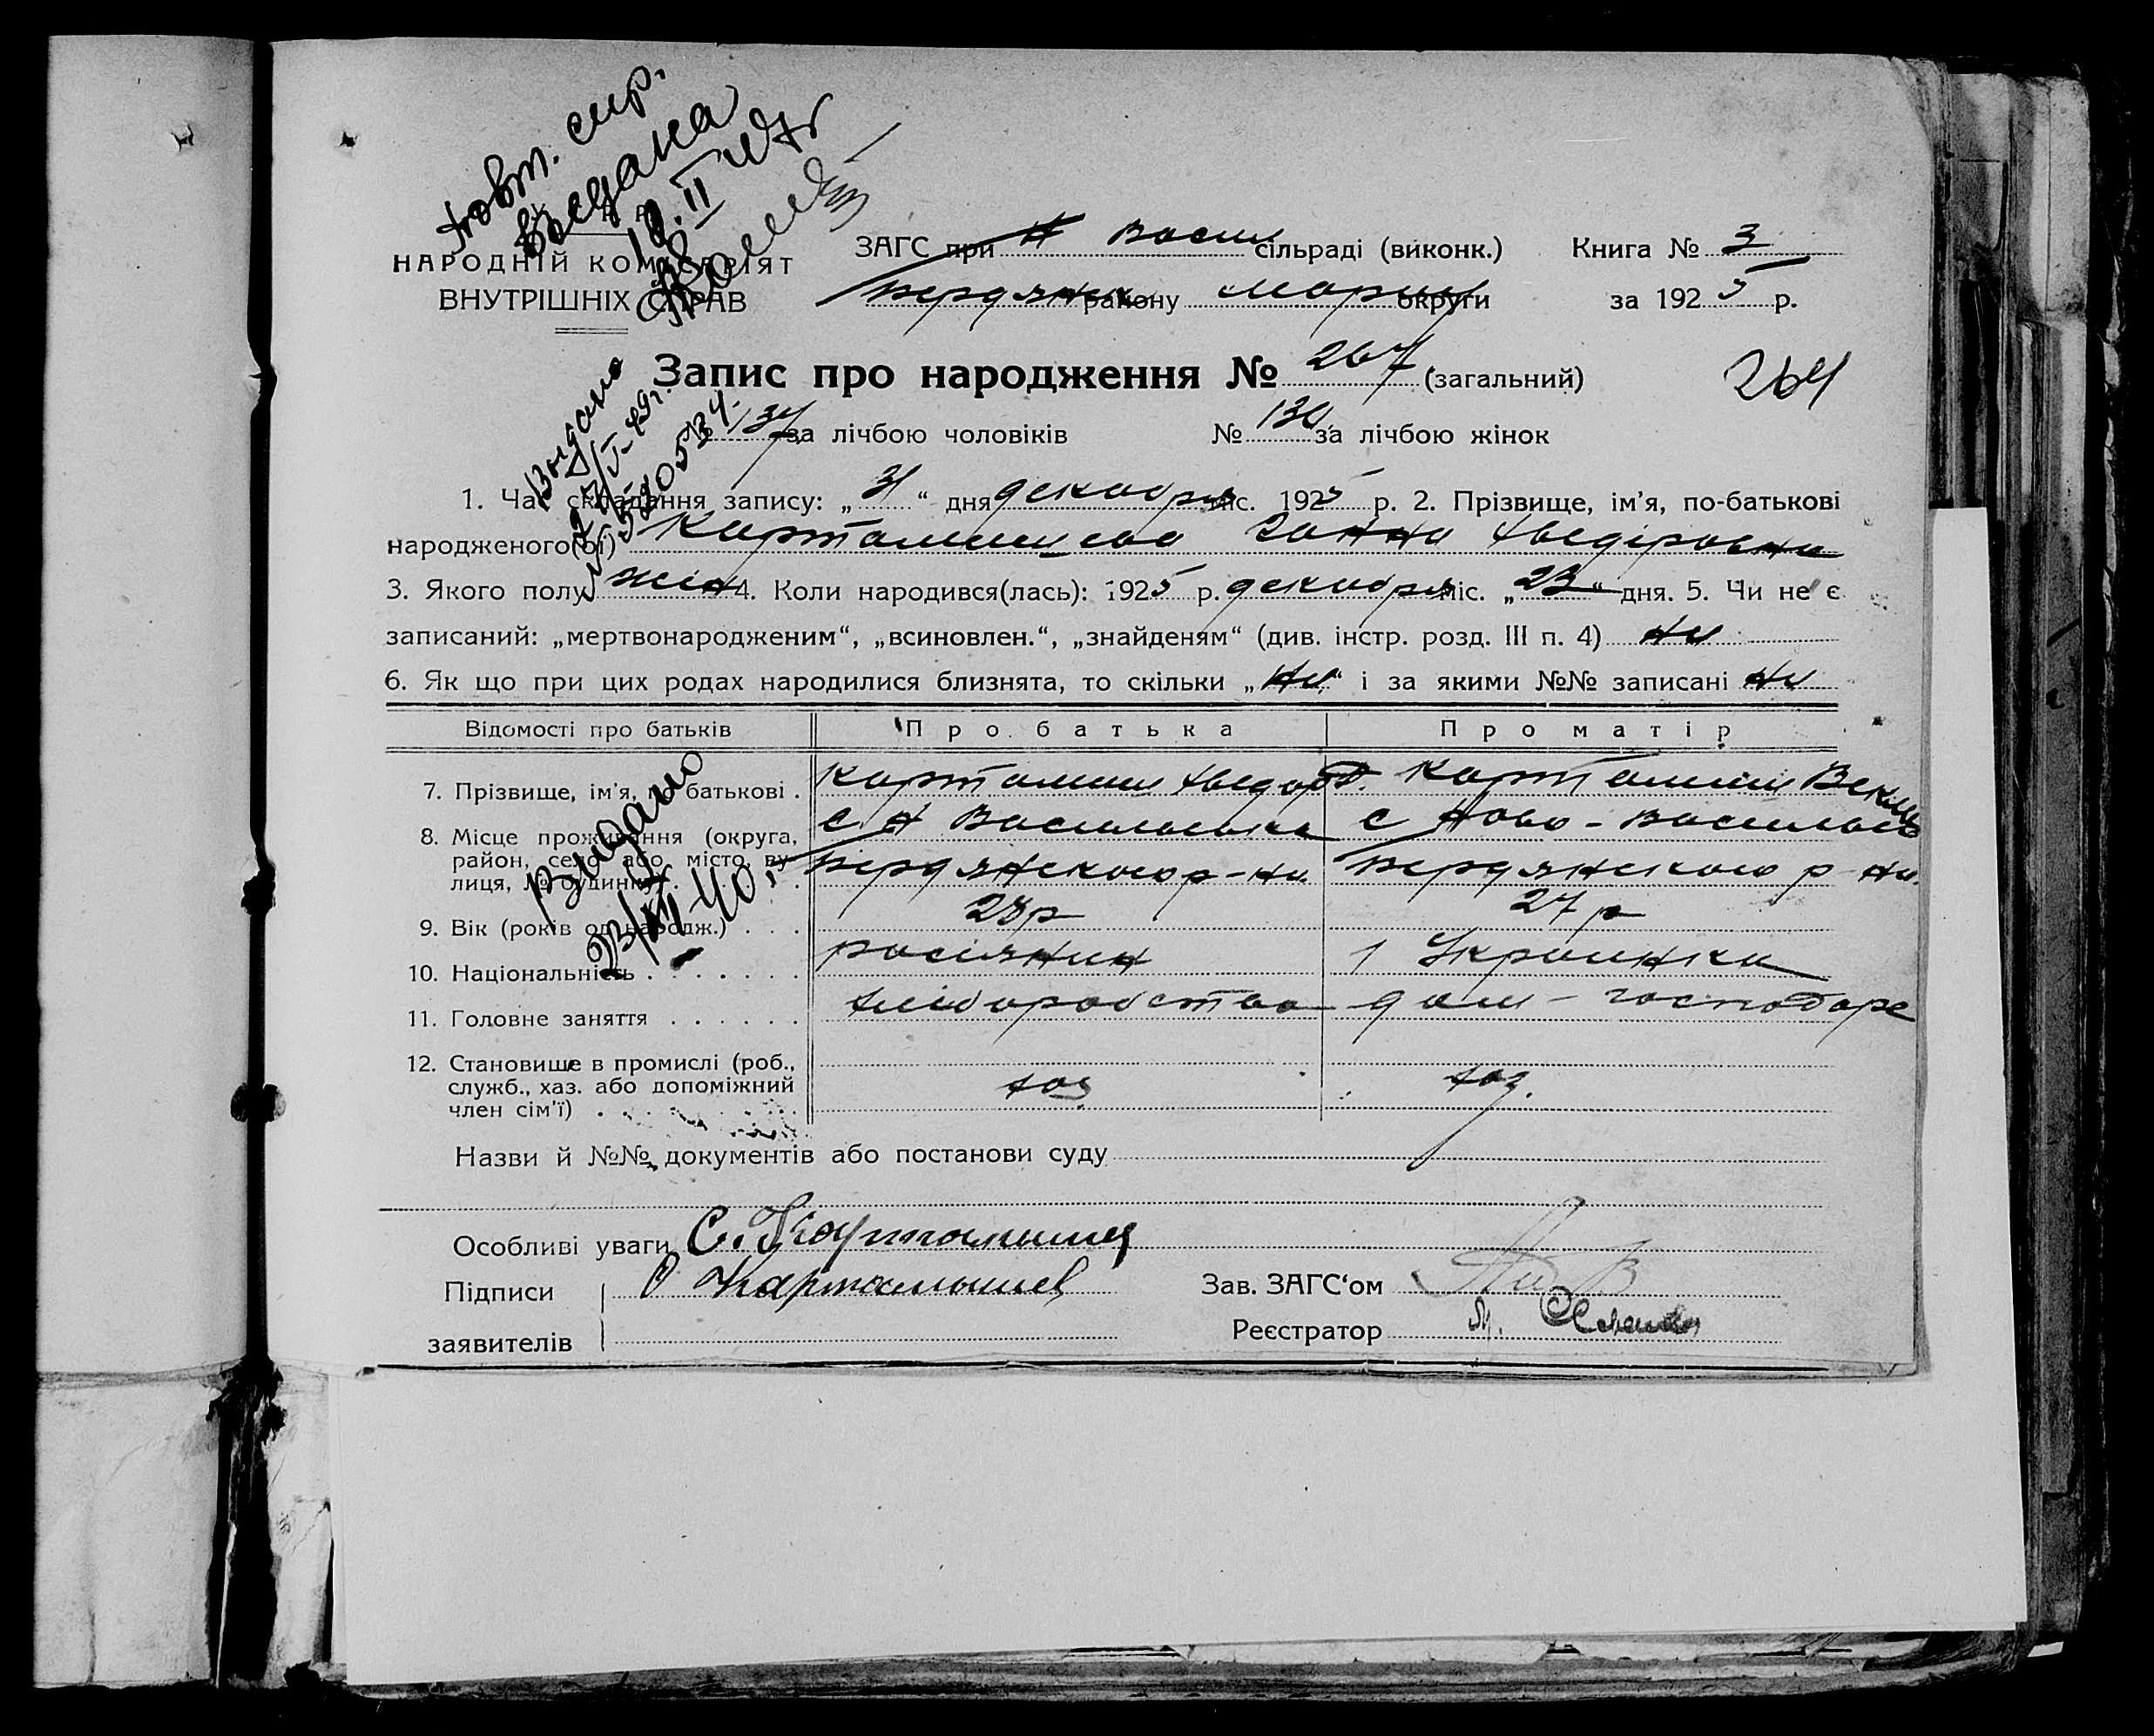 повт. спр.
выдана
НАРОДНІЙ КОМІСАРІЯТ
ВНУТРІШНІХ СПРАВ
ЗАГС при Н Васил сільраді (виконк.) Книга № 3
Бердянск району Мариуп округи за 1925 р.
Запис про народження № 267 (загальний)
264
137 за лічбою чоловіків № 130 за лічбою жінок
Выдано
1. Час складання запису: „31“ дня декабря міс. 1925 р. 2. Прізвище, ім’я, по-батькові
народженого(ої) Ганна
3. Якого полу жін 4. Коли народився(лась): 1925 р. декабря міс. „23“ дня. 5. Чи не є
записаний: „мертвонародженим“, „всиновлен.“, „знайденям“ (див. інстр. розд. III п. 4) ни
6. Як що при цих родах народилися близнята, то скільки „ни“ і за якими №№ записані ни
Відомості про батьків Про батька Про матір
7. Прізвище, ім’я, по батькові . Карталиш Карталиш
8. Місце проживання (округа, с Н Васильевка с Ново-Васильев
район, село або місто, ву- Бердянского р-на Бердянского р-на
лиця, № будинку) . . .
Видано
23/XII-40
9. Вік (років од народж.) . . . 28 р 27 р
10. Національність . . . . . . . росіянин Украинка
11. Головне заняття . . . . . . хлiборобство дом-господаре
12. Становище в промислі (роб.,
служб., хаз. або допоміжний хоз хоз.
член сім’ї) . . . . . . .
Назви й №№ документів або постанови суду
Особливі уваги С. Карталышев
Підписи Карталышев Зав. ЗАГС‘ом
заявителів Реєстратор